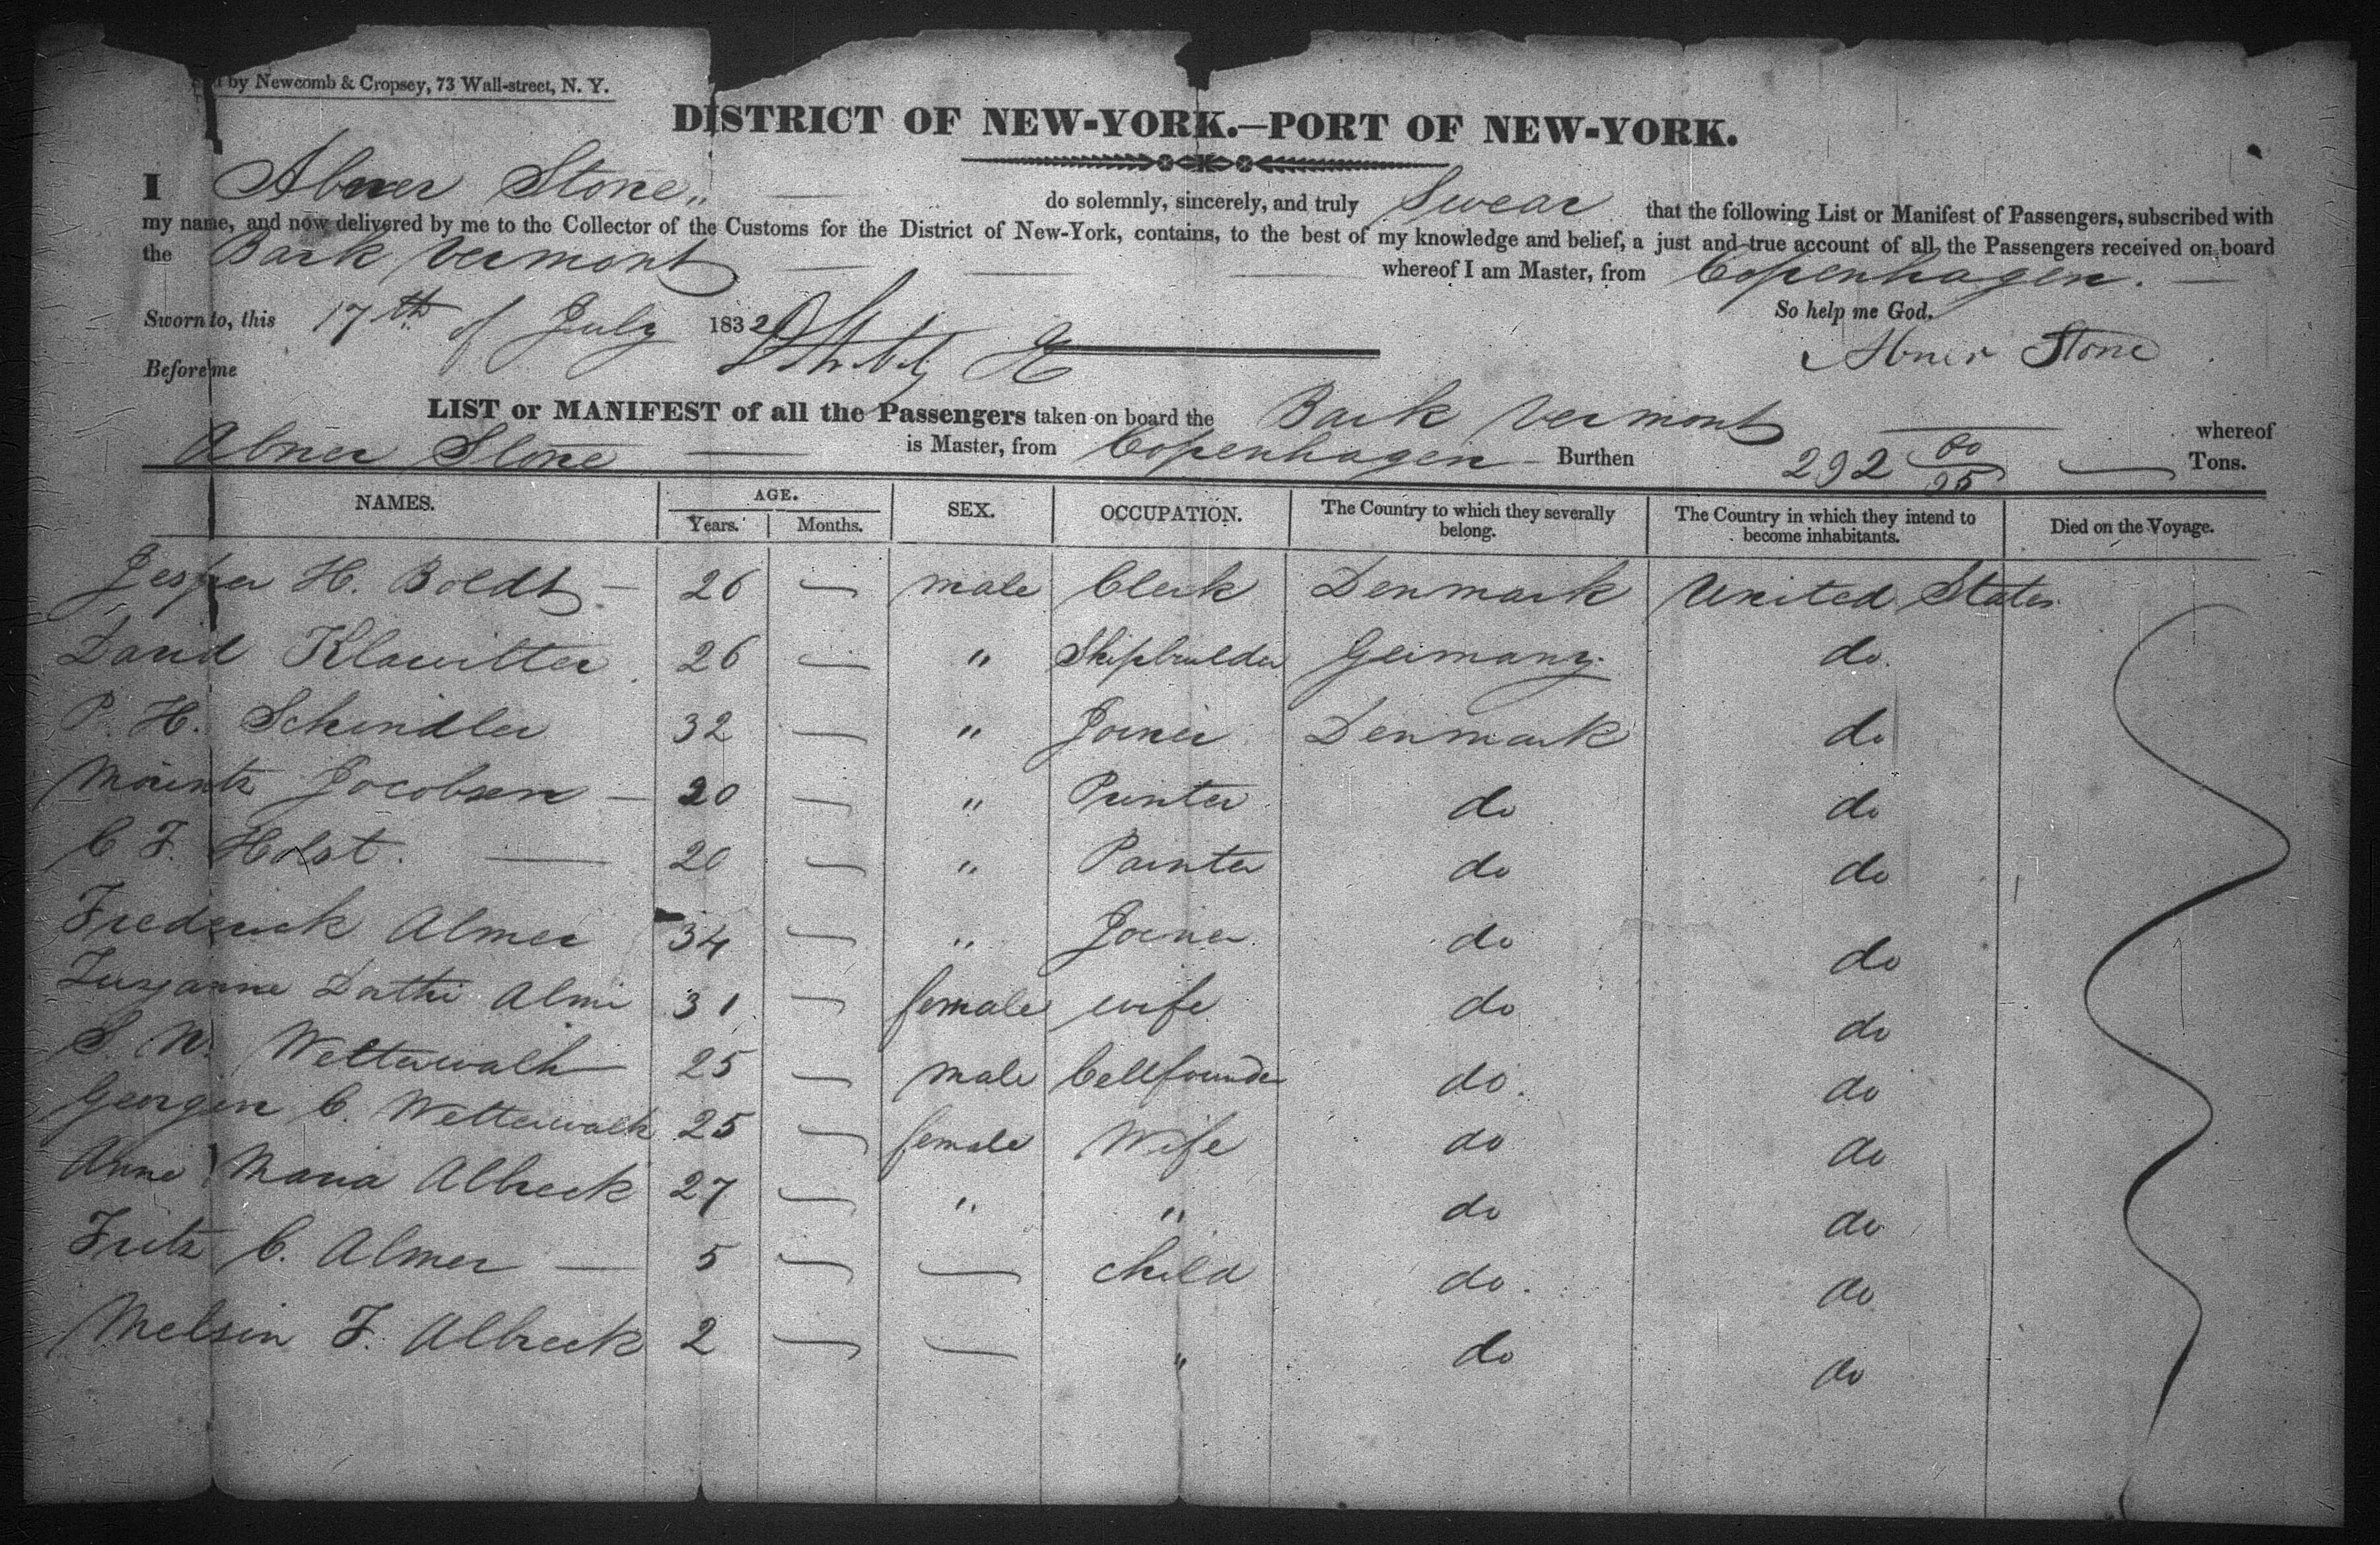 by Newcomb & Cropsey, 73 Wall-street, N. Y.
DISTRICT OF NEW-YORK.—PORT OF NEW-YORK.
I Abner Stone do solemnly, sincerely, and truly Swear that the following List or Manifest of Passengers, subscribed with
my name, and now delivered by me to the Collector of the Customs for the District of New-York, contains, to the best of my knowledge and belief, a just and true account of all the Passengers received on board
the Bark Vermont whereof I am Master, from Copenhagen.
So help me God.
Sworn to, this 17th of July 1832
Abner Stone
Before me
LIST or MANIFEST of all the Passengers taken on board the Bark Vermont whereof
Abner Stone is Master, from Copenhagen Burthen 292 60/95 Tons.
NAMES. AGE. Years. Months. SEX. OCCUPATION. The Country to which they severally belong. The Country in which they intend to become inhabitants. Died on the Voyage.
Jesper H. Boldt — 26 — male Clerk Denmark United States
David Klawitter 26 — " Shipbuilder Germany do
P. H. Schindler 32 — " Joiner Denmark do
Mouritz Jocobsen — 20 — " Printer do do
C F. Holst. — 20 — " Painter do do
Frederick Almer 34 — " Joiner do do
Zusjanne Dorthe Almer 31 — female wife do do
S. N. Wetterwalh 25 — male Bellfounder do do
Georgen C. Wetterwalh 25 — female Wife do do
Anne Maria Albreck 27 — " " do do
Fritz C. Almer — 5 — — child do do
Melsin F. Albreck 2 — — " do do